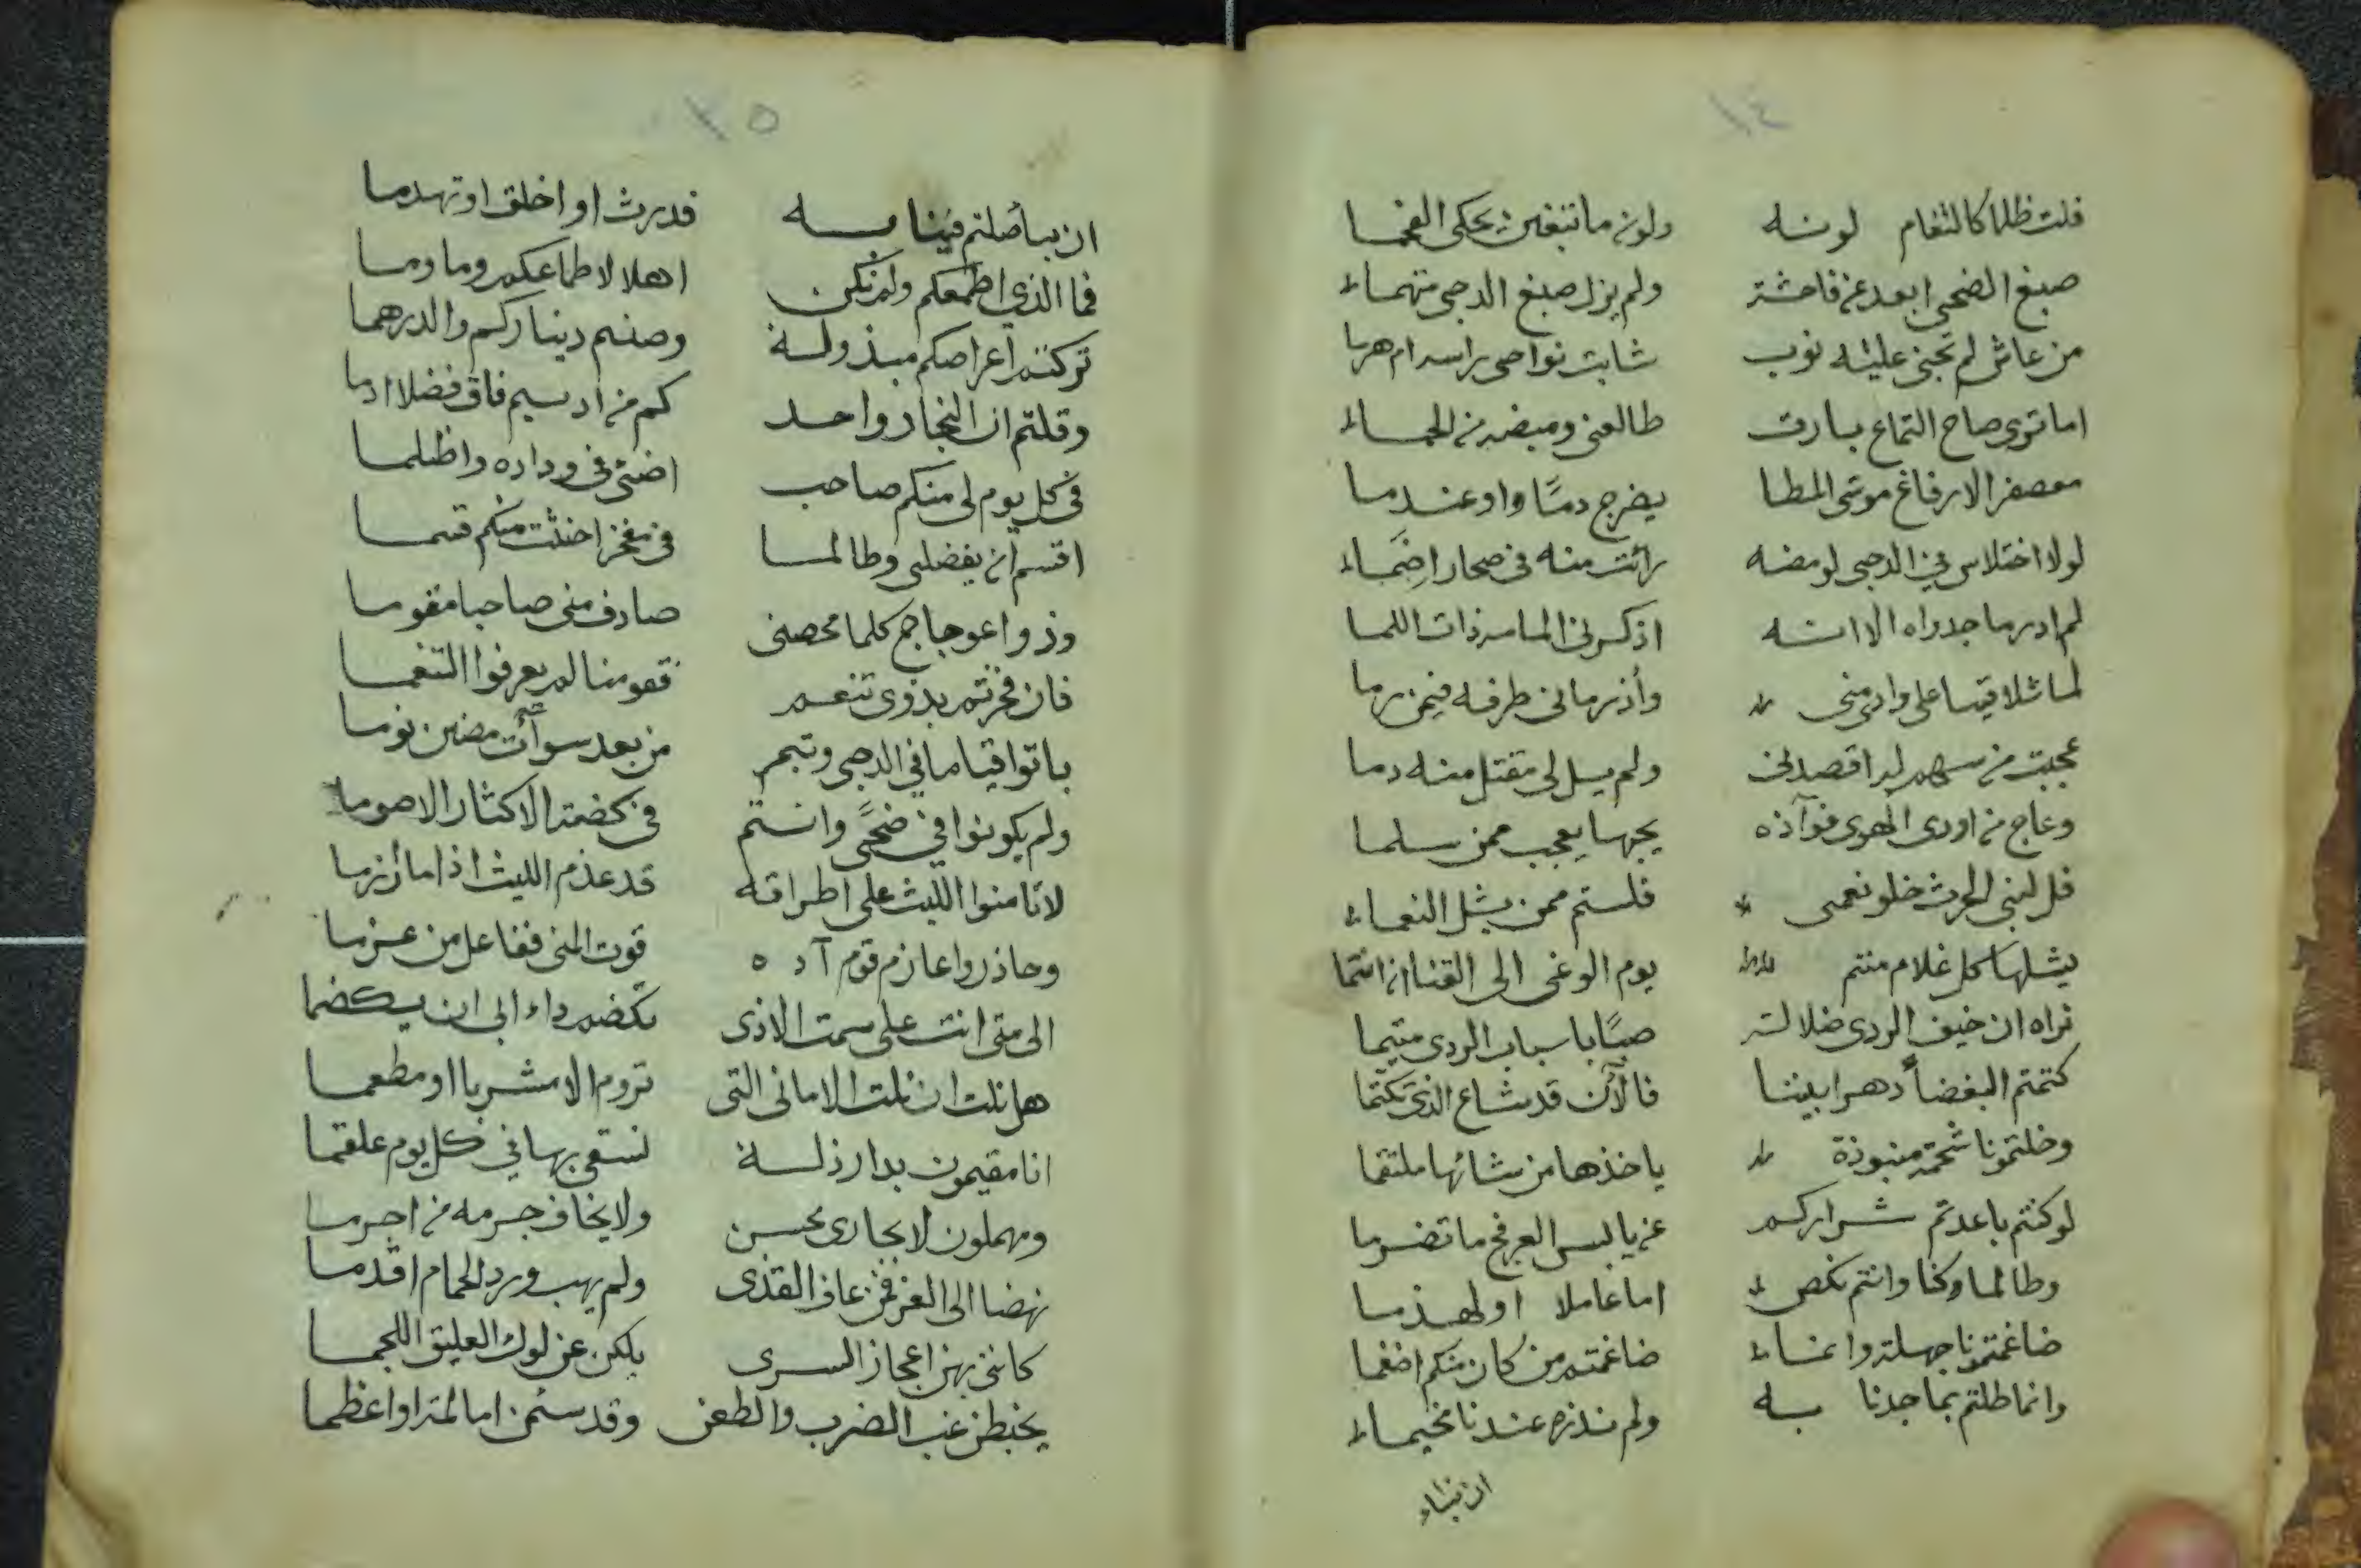 ١٤
فلت ظلما كالثغام لونه ولون ما تبغين يحكى الفحما
صبغ الضحى ابعد عن فاحشة ولم يزل صبغ الدجى متهما
من عاش لم تجن عليه نوب شابت نواحى راسه ام هرما
اما ترى صاح التماع بارق طالعنى وميضه من الحما
معصفر الارفاغ موشى المطا يضرج دمًا واو عندما
لولا اختلاس في الدجى لومضه رائت منه فى صحار اضما
لم ادر ما جدواه الا انه اذكرنى المامه ذات اللما
لما تلاقينا على وادى منى وأذ رمانى طرفه فيمن رما
عجبت من سهم له اقصدنى ولم يسل لى مقتل منه دما
وعاج من اورى الهوى فوآده يجهها يعجب ممن سلما
قل لبنى الحرث خلو نعمى فلستم ممن يشل النعما
يشلها كل غلام منتم يوم الوغى الى القنا ان انتما
تراه ان خيف الردى ضلالة صبًا باسباب الردى متيما
كتمتم البغضأ دهرا بيننا فالآن قد شاع الذى تكتما
وخلتمونا شحمة منبوذة ياخذها من شائها ملتقما
لو كنتم باعدتم شراركم عن يابس العرفج ما تضرما
وطالما وكنا وانتم نكص اما عاملا او لهذما
ضاغمتمونا جهلة واننا ضاغمتم من كان منكم اضغما
وانما طلتم بما جدنا به ولم نذره عندنا مخيما
ان بنا
١٥
ان بنا أصلتم فينا به قد رث او اخلق او تهدما
فما الذي اطمعكم ولم نكن اهلا لاطماعكم وما وما
تركتم اعراضكم مبذولة وصنتم ديناركم والدرهما
وقلتم ان النجار واحد كم من اديم فاق فضلا ادما
فى كل يوم لى منكم صاحب اضئ فى وداده واظلما
اقسم ان يفضلنى وطالما فى مفخر اخنثت منكم قسما
وذو اعوجاج كلما محصنى صادف منى صاحبا مقوما
فان فخرتم بذوى تنعم فقومنا لم يعرفوا التنعما
باتوا قياما في الدجى وتبم من بعد سوآت مضين نوما
ولم يكونوا في ضحًى وانتم فى كضة الاكثار الا صوما
لا تأمنوا الليث على اطراقه قد عذم الليث اذا ما أزرما
وحاذروا عازم قوم آده قوت المنى ففاعل من عزما
الى متى انت على سمت الاذى تكضم داء ابى ان يكضما
هل نلت ان نلت الامانى التى تروم الا مشربا او مطعما
انا مقيمون بدار ذلة نسقى بها في كل يوم علقما
ومهملون لا يجازى محسن ولا يخاف جرمه من اجرما
نهضا الى العز فمن عاف القذى ولم يهب ورد الحمام اقدما
كاننى بهن اعجاز السرى يلكن عن لوك العليق اللجما
يخبطن غب الضرب والطعن وقد سئمن اما لمتر او اعظما